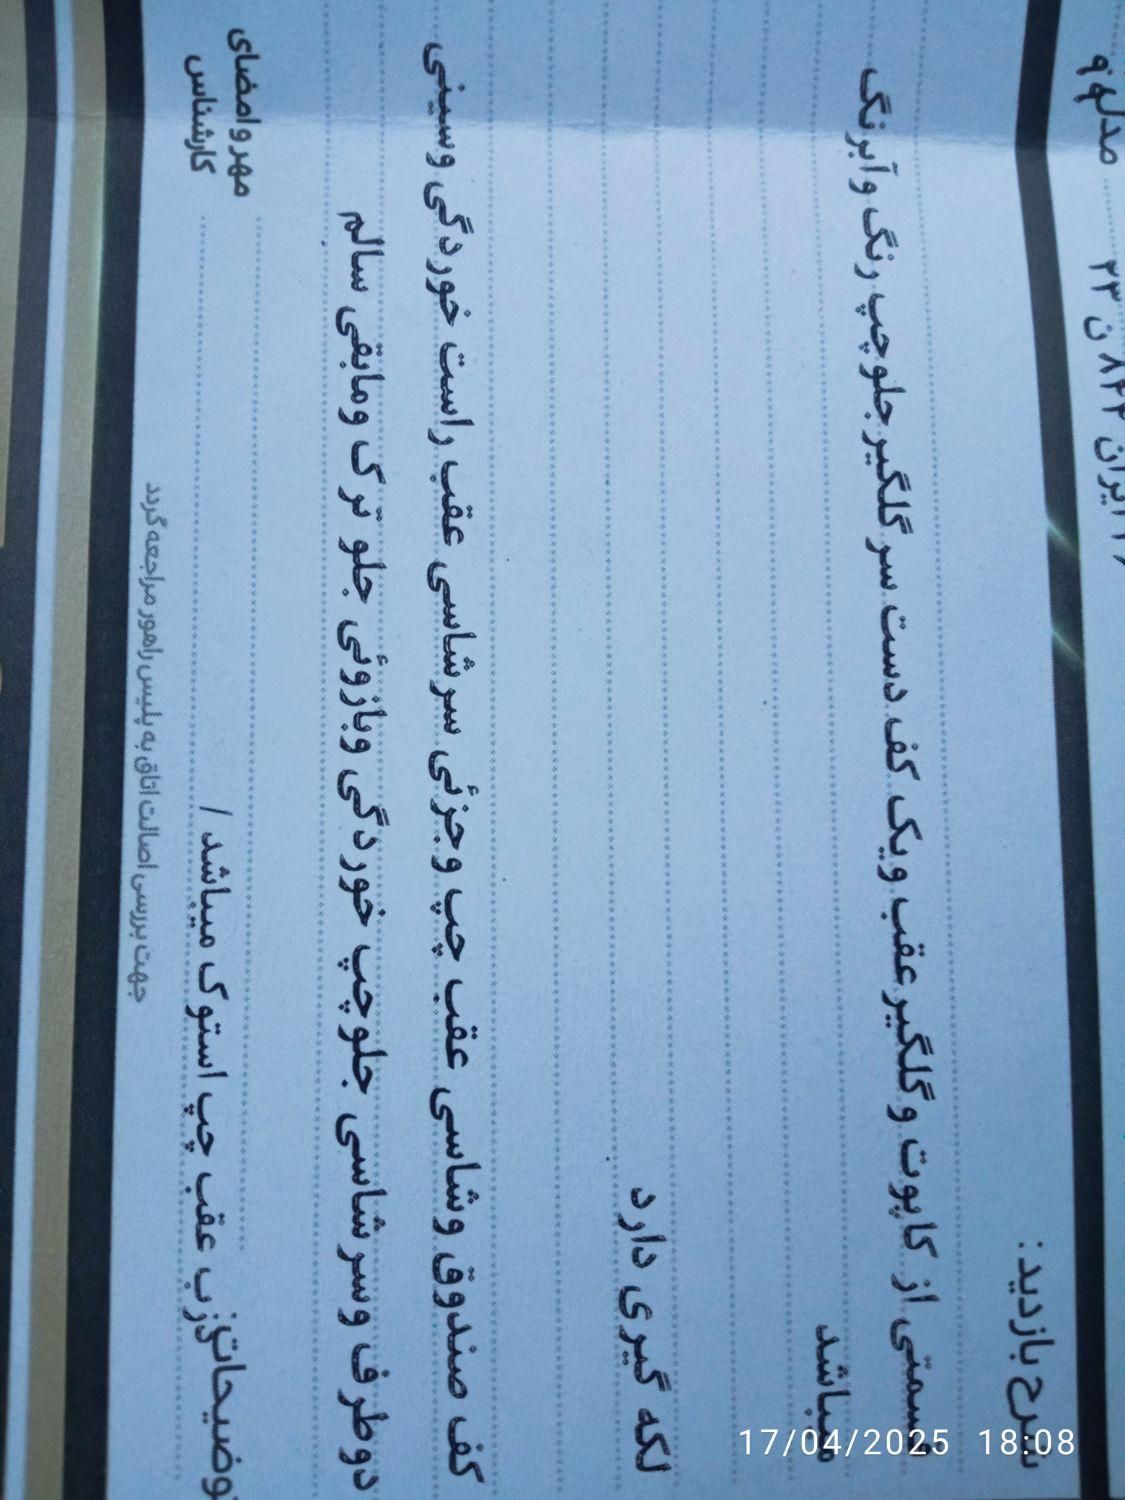 مدل
ایران ۸۴۴ ن ۲۳
شرح بازدید:
قسمتی از کاپوت و گلگیر عقب ویک کف دست سر گلگیر جلو چپ رنگ و آبرنگ
میباشد
لکه گیری دارد
کف صندوق و شاسی عقب چپ و جزئی سرشاسی عقب راست خوردگی وسینی
دوطرف وسرشاسی جلو چپ خوردگی وبازوئی جلو ترک ومابقی سالم
توضیحات: درب عقب چپ استوک میباشد /
مهر و امضای
کارشناس
جهت بررسی اصالت اتاق به پلیس راهور مراجعه گردد
17/04/2025 18:08